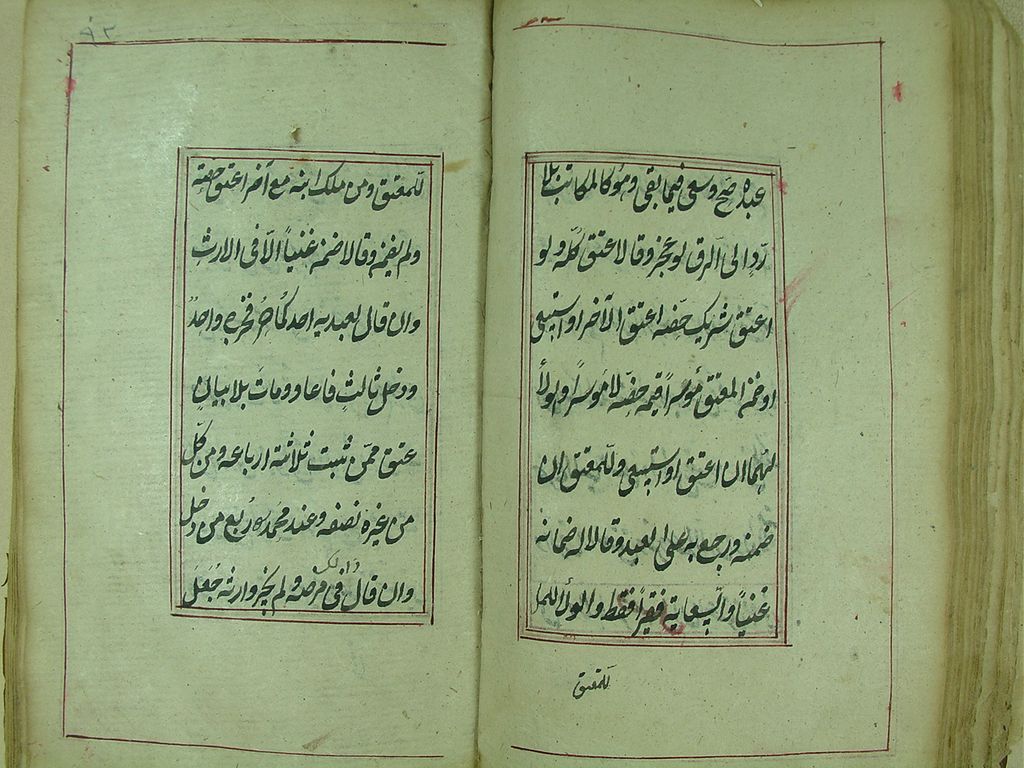 عبده صح وسعى فيما بقى وهو كالمكاتب بلا
رد الى الرق لو عجز وقالا عتق كله ولو
اعتق شريك حصته اعتق الآخر او استسعى
او ضمن المعتق موسراً قيمة حصته لا موسراً والولاء
لهما ان اعتق او استسعى وللمعتق ان
ضمنه ورجع به على العبد وقالا له ضمانه
غنياً والسعاية فقيراً فقط والولاء
للمعتق
٩٢
للمعتق ومن ملك ابنه مع آخر اعتق حصته
ولم يضمنه وقالا ضمنه غنياً الا فى الارث
وان قال لعبديه احدكما حر فخرج واحد
ودخل ثالث فاعاد ومات بلا بيان
عتق ممن ثبت ثلاثة ارباعه ومن كل
من غيره نصفه وعند محمد ره ربع من دخل
ذلك
وان قال فى مرضه ولم يجز وارثه جعل